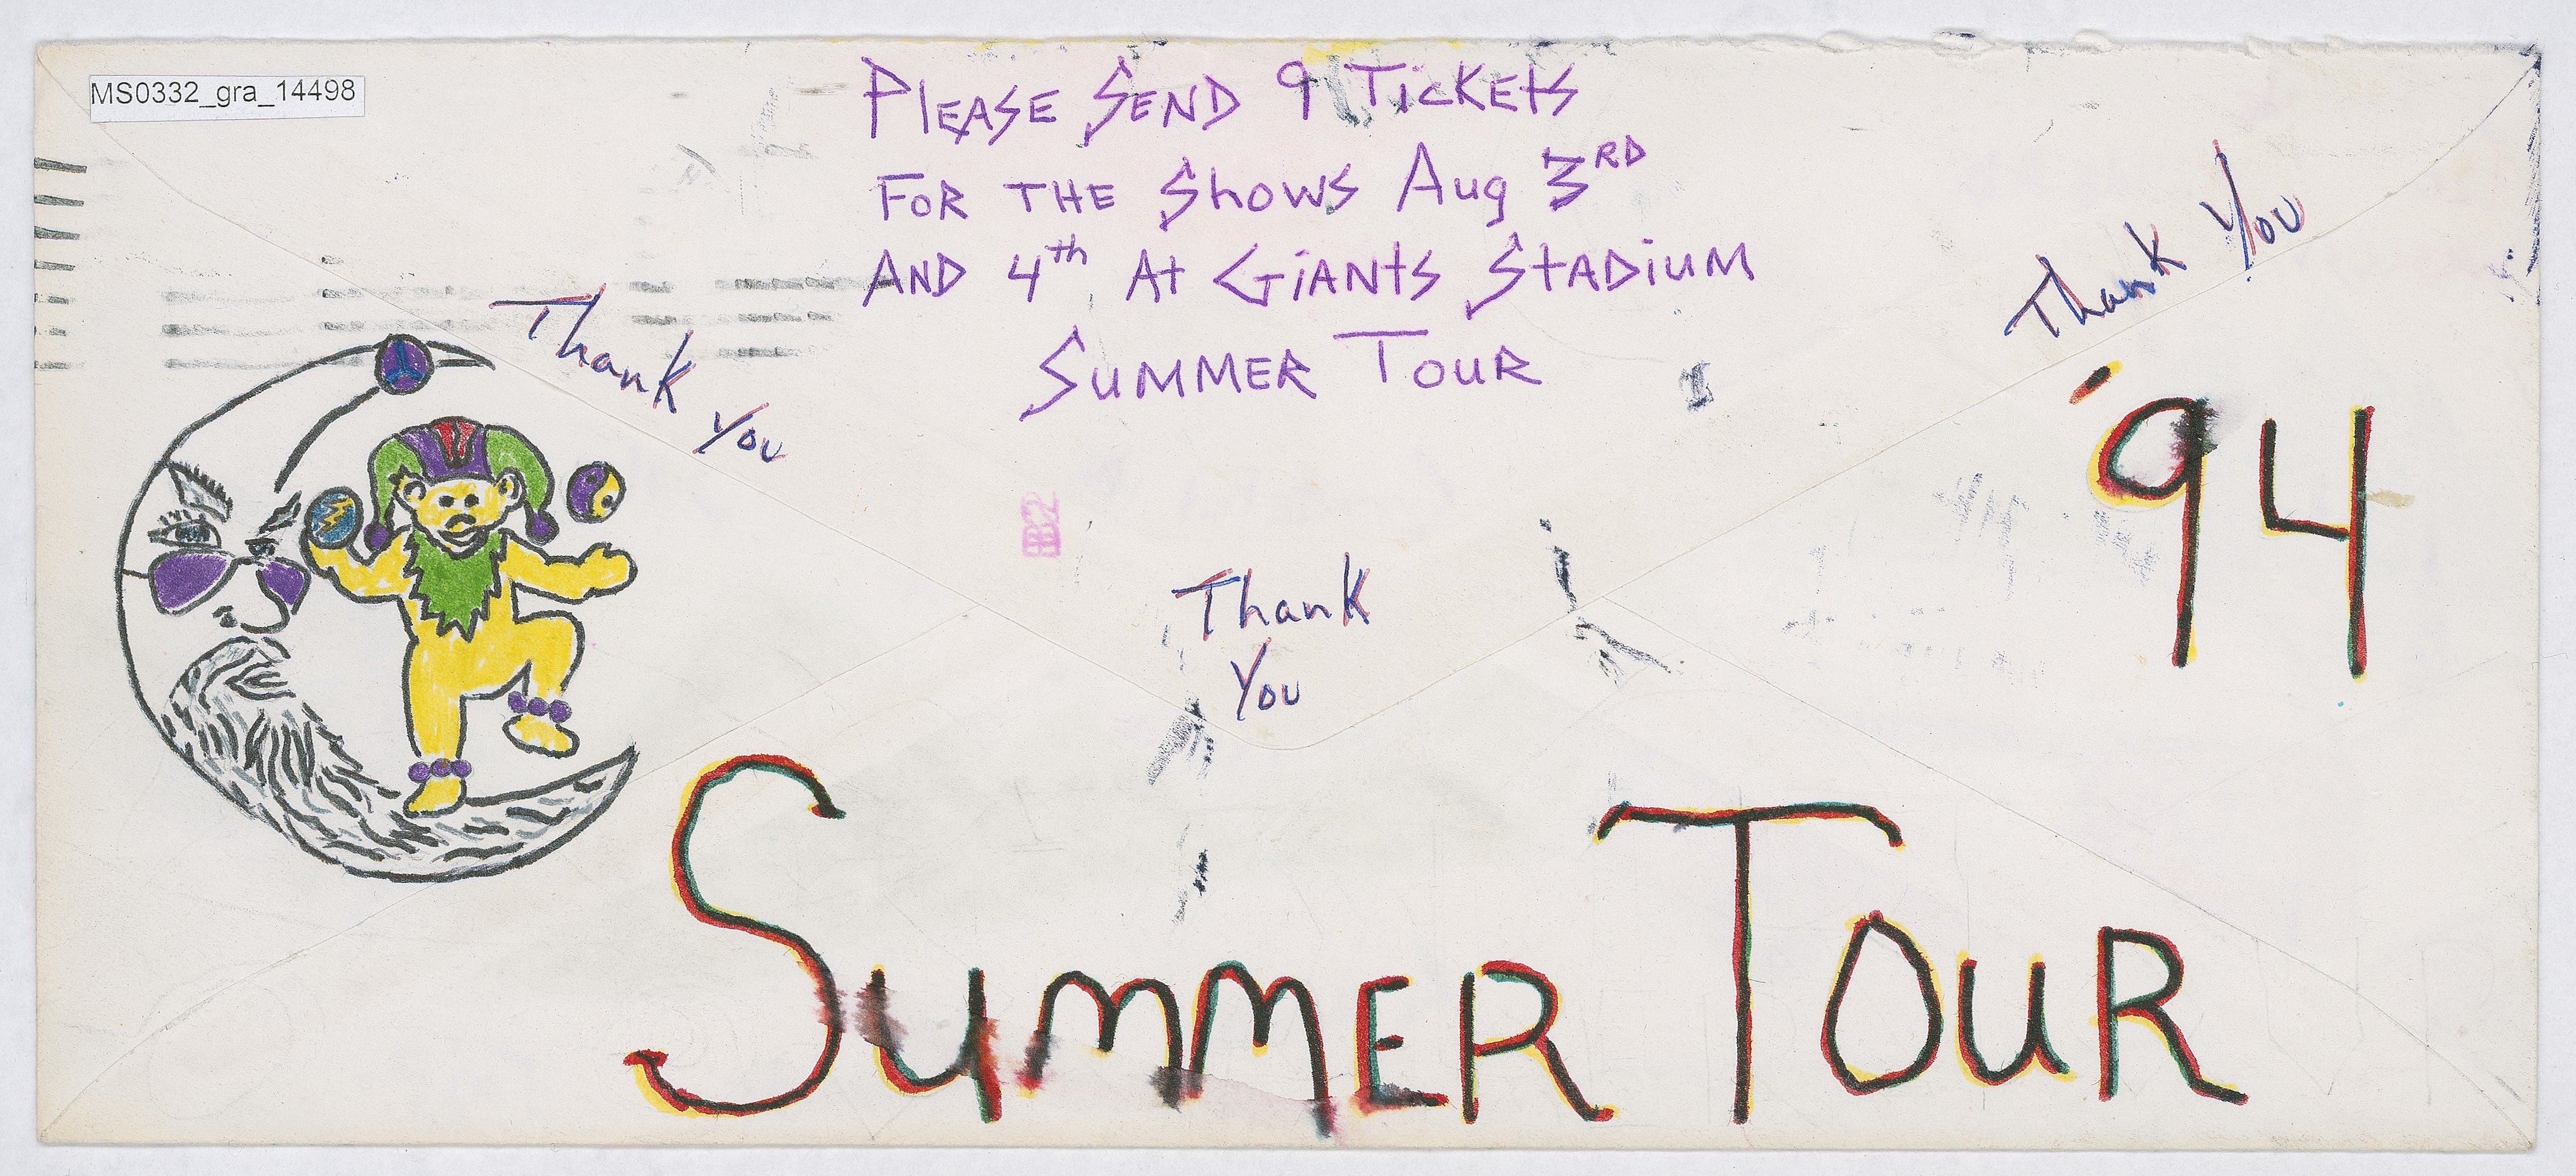 MS0332_gra_14498
PLEASE SEND 9 TICKETS
FOR THE Shows Aug 3RD
AND 4th At GiANtS StADiUM
SUMMER TOUR
Thank You
Thank You
'94
Thank
You
SummER TOuR